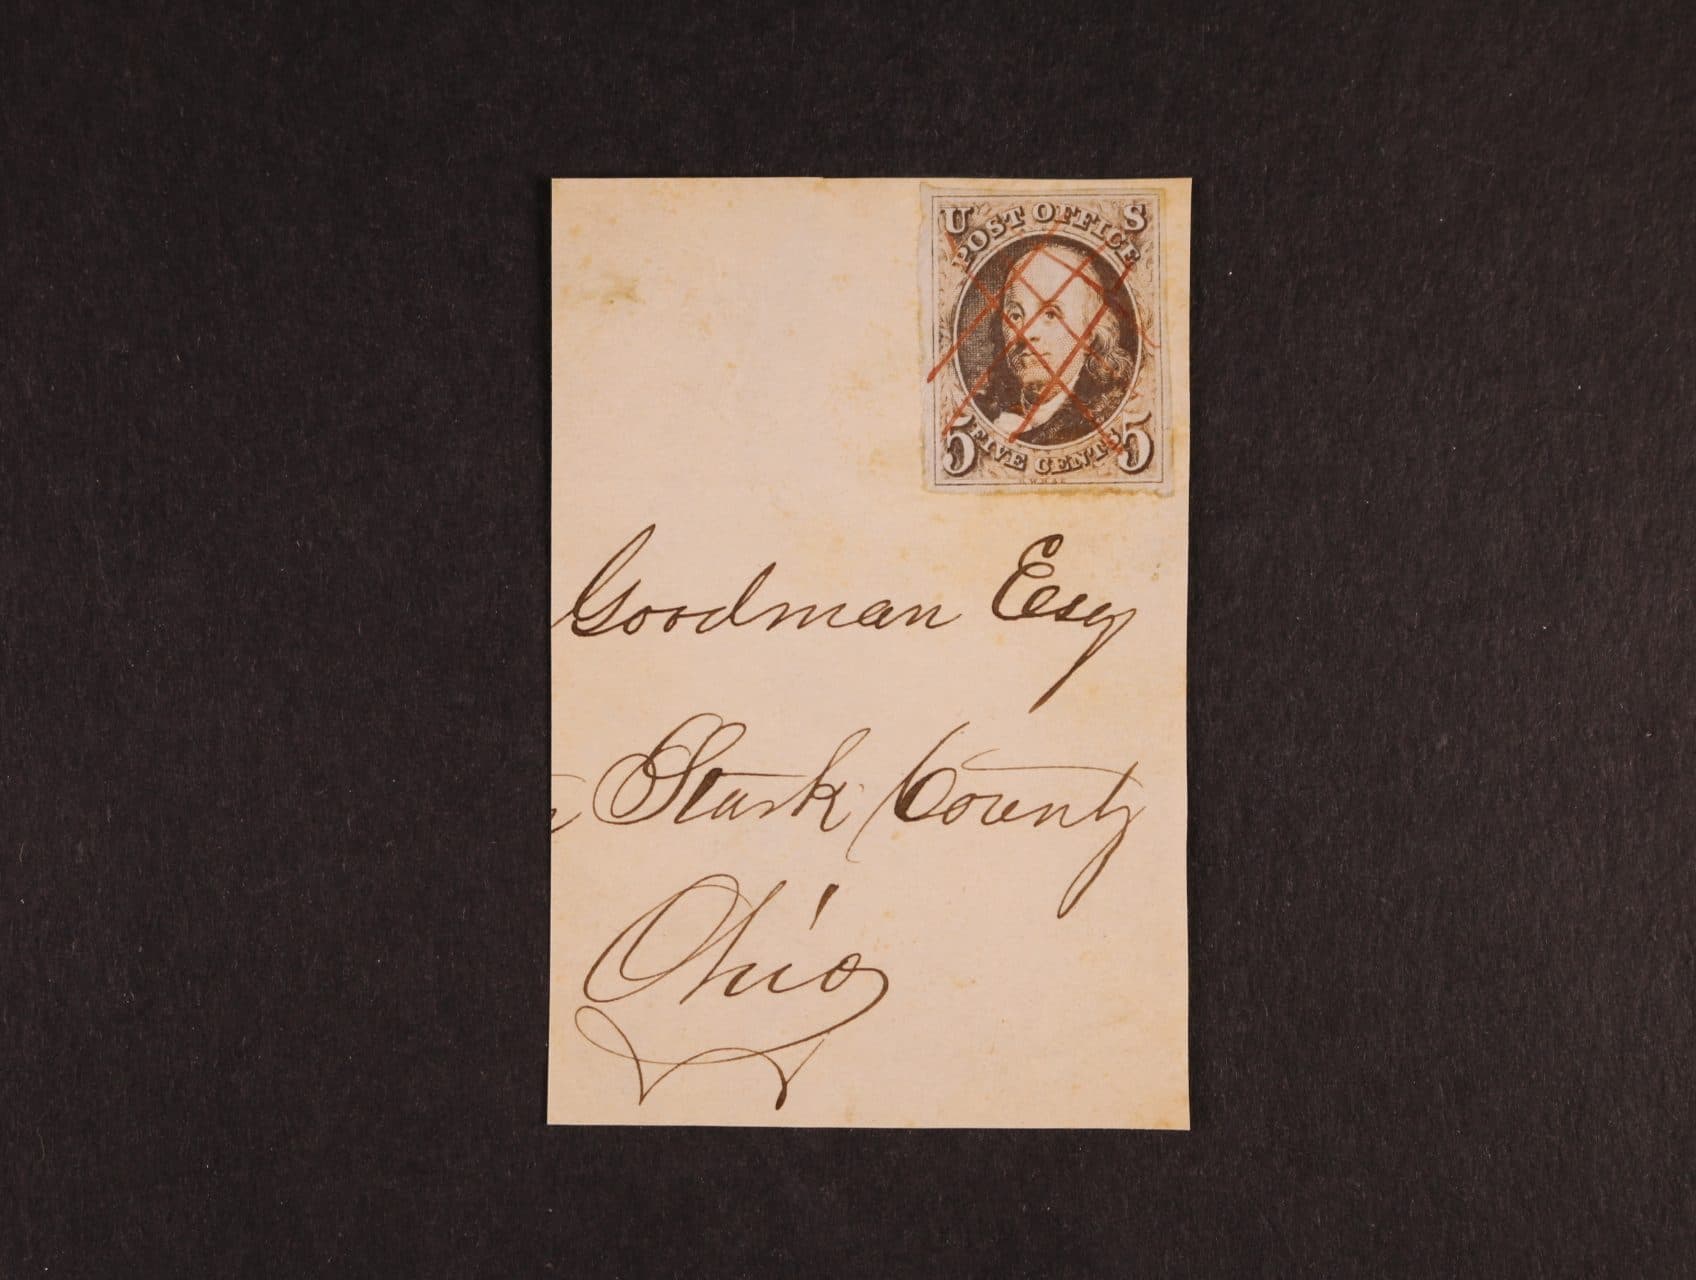 U S
POST OFFICE
5 FIVE CENTS 5
Goodman Esq
Stark County
Ohio